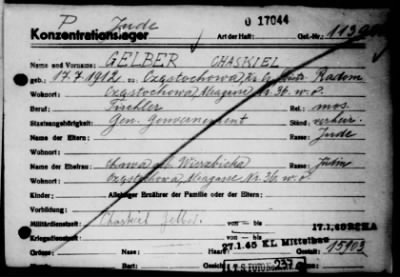 P Jude 0 17044
Konzentrationslager Art der Haft: Gef.-Nr.:
Name und Vorname: GELBER CHASKIEL
geb.: 17.7.1912 zu: Częstochowa, Kr. Radom
Wohnort: Częstochowa, Nr. 36. w. o.
Beruf: Tischler Rel.: mos.
Staatsangehörigkeit: Gen. Gouvernement Stand: verheir.
Name der Eltern: Rasse: Jude
Wohnort:
Name der Ehefrau: Chawa geb. Wierzbicka Rasse: Jüdin
Wohnort: Częstochowa, Nr. 36. w. o.
Kinder: Alleiniger Ernährer der Familie oder der Eltern:
Vorbildung:
Militärdienstzeit: Chaskiel Gelber. von — bis
Kriegsdienstzeit: von — bis
Grösse: Nase: Haare: 27.1.45 KL Mittelbau 15903
Bart: Gesicht: I.T.S. FOTO 237